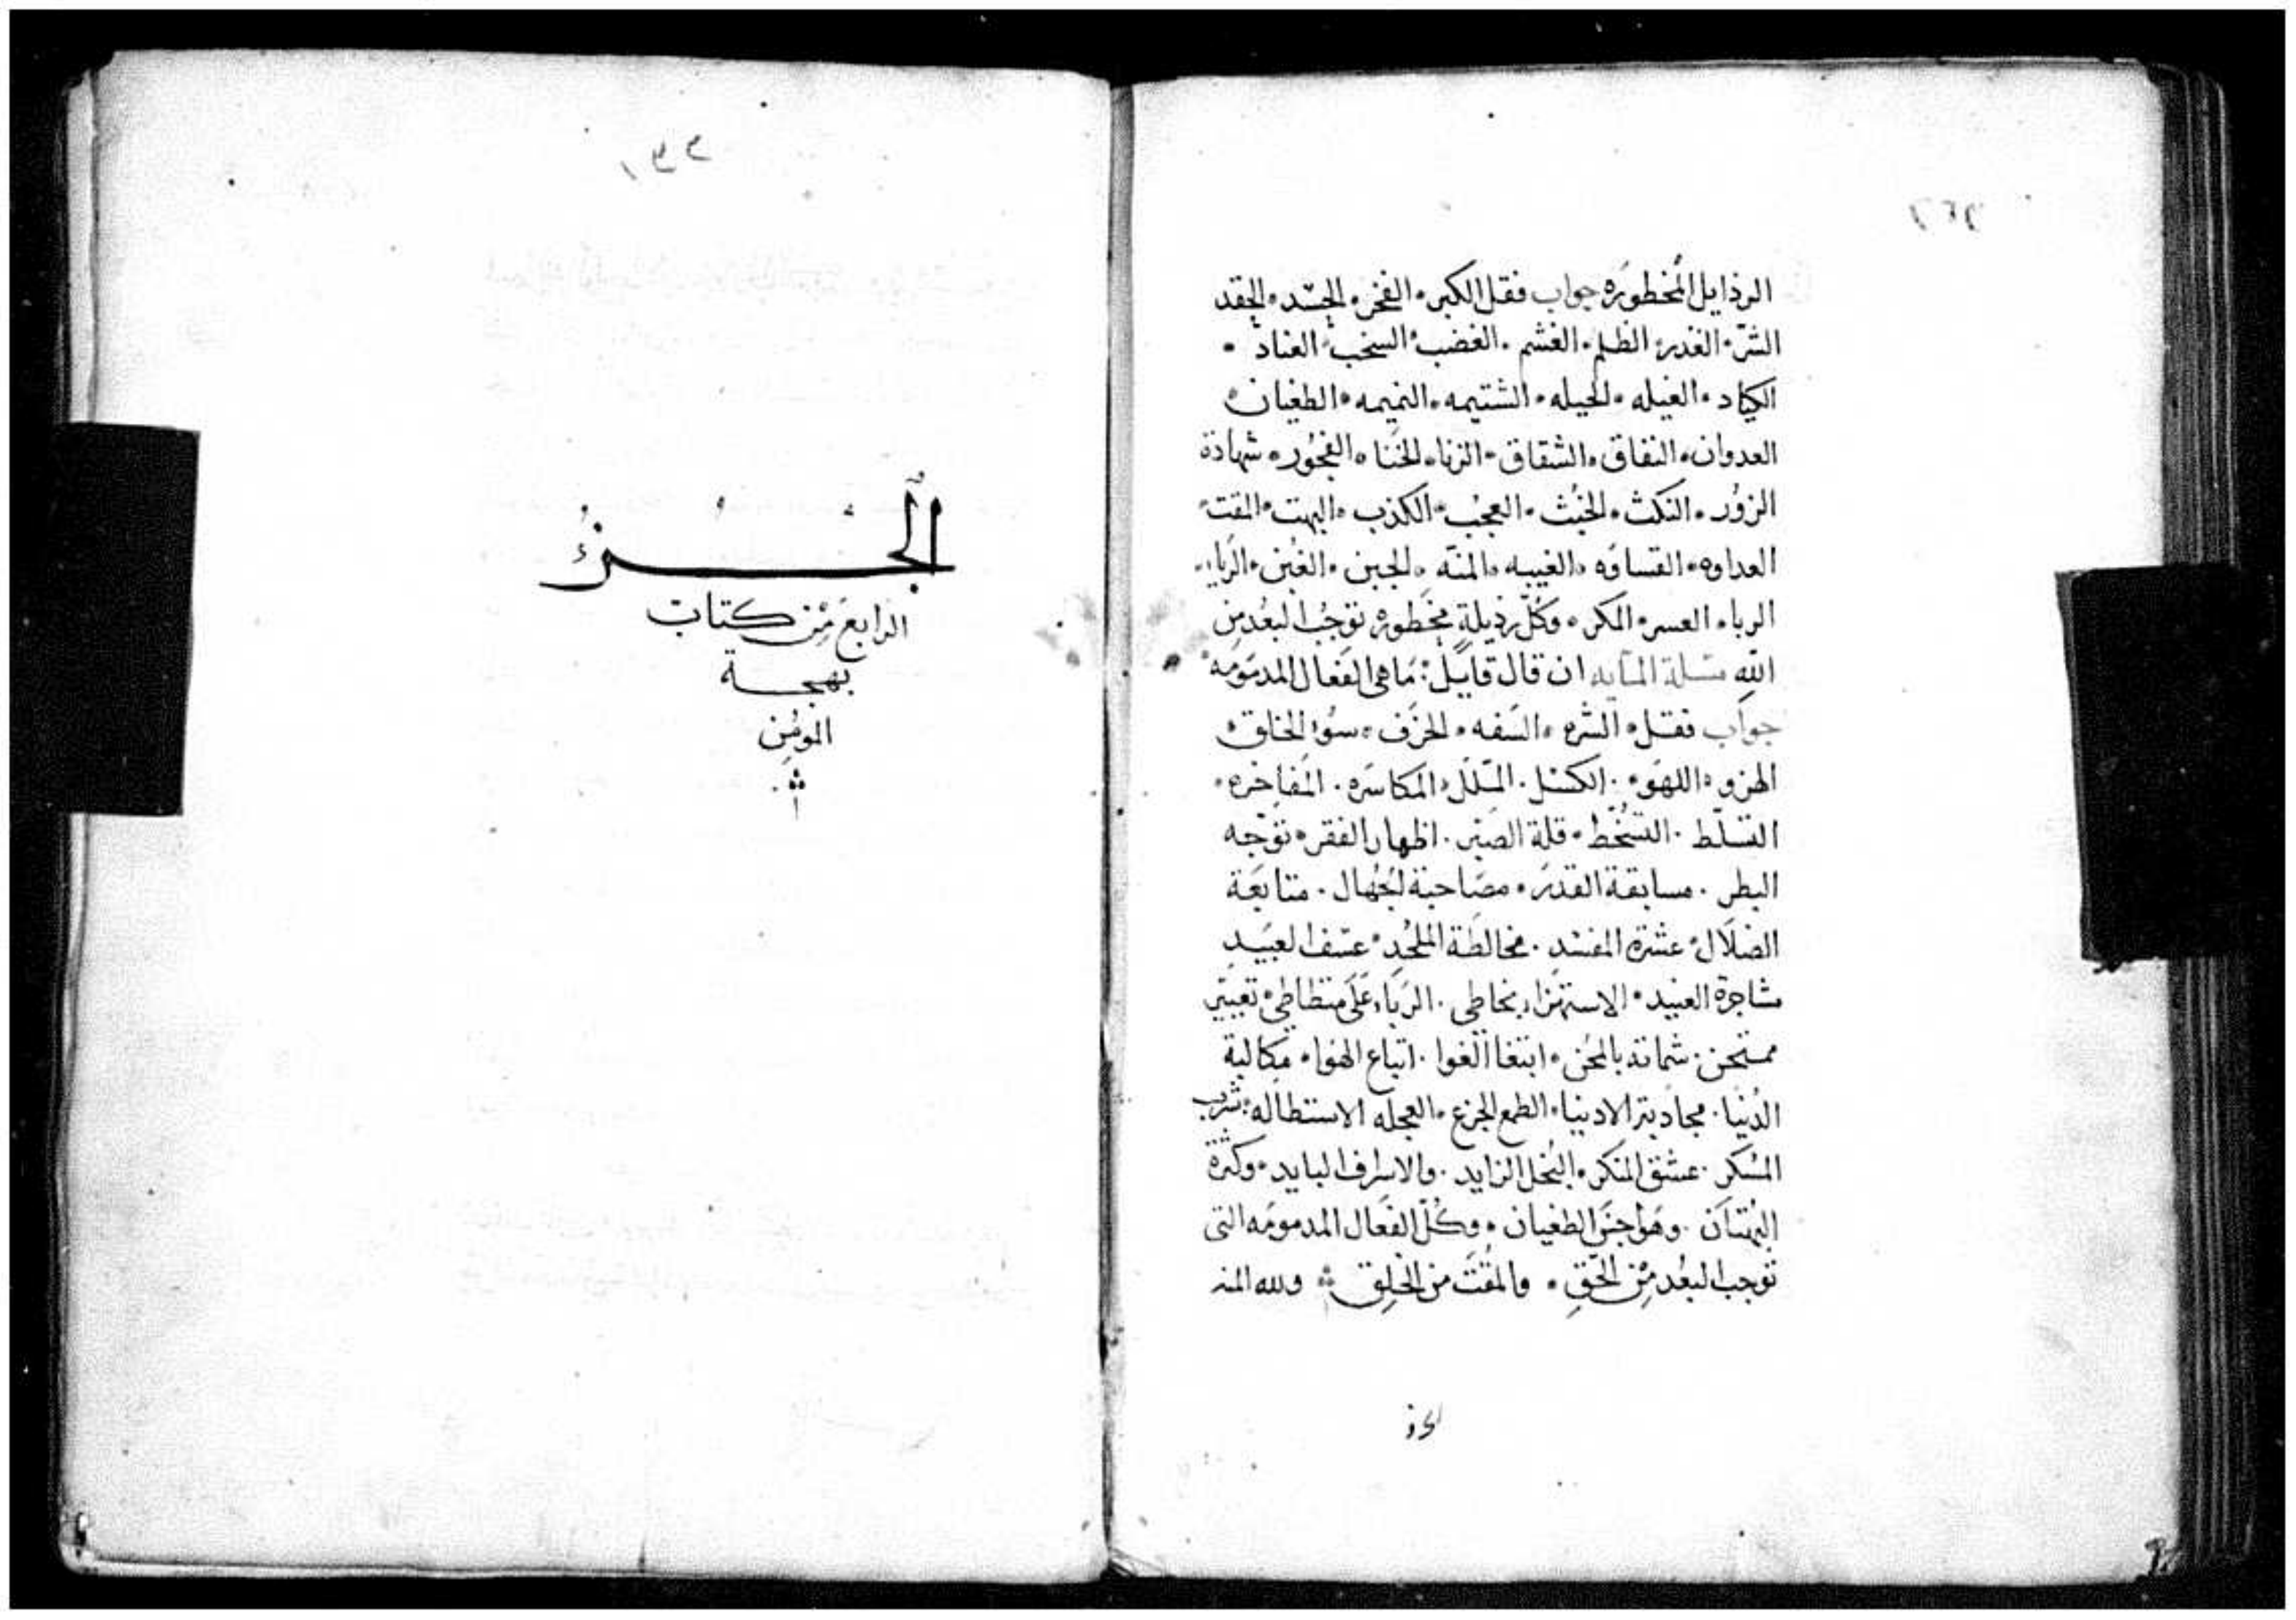 الرذايل المخطوره جواب فقل الكبر الفخر الحسد الحقد
الشر الغدر الظلم الغشم الغضب السخب العناد
الكياد الغيله الحيله الشتيمه النميمه الطغيان
العدوان النفاق الشقاق الزنا الخنا الفجور شهادة
الزور النكث الخبث العجب الكذب البهت المقت
العداوه القساوه الغيبه المنه الجبن الغبن
الرياء العسر المكر وكل رذيلة مخطوره توجب البعد من
الله مسلة المايه ان قال قايل ما هي الفعال المدمومه
جواب فقل الشره السفه الخرف سوء الخلق
الهزو اللهو الكسل الملل المكاسره المفاخره
التسلط التسخط قلة الصبر اظهار الفقر توجه
البطر مسابقة القدر مصاحبة الجهال متابعة
الضلال عشرة المفسد مخالطة الملحد عسف العبيد
مشاجرة العنيد الاستهزاء بخاطي الرياء على متظاطي تعيير
ممتحن شماتة بالمحن ابتغا الغوا اتباع الهوا مكالبة
الدنيا الادنيا الطمع الجزع العجله الاستطاله شرب
المسكر عشق المنكر البخل الزايد والاسراف البايد وكثرة
البهتان الطغيان وكل الفعال المدمومه التي
توجب البعد من الحق والمقت من الخلق ولله المنه
الجزء
الرابع من كتاب
بهجة
المومن